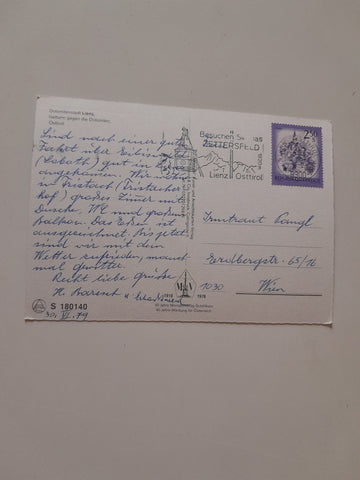 Dolomitenstadt Lienz,
gegen die Dolomiten,
Osttirol
Sind nach einer guten
Fahrt über
gut in Lienz
angekommen. Wir wohnen
in Tristach (Tristacher-
hof) großes Zimmer mit
Dusche, WC und großem
Balkon. Das Essen ist
ausgezeichnet. Bis jetzt
sind wir mit dem
Wetter zufrieden, manch-
mal Gewitter.
Recht liebe Grüße
H.
S 180140
30. VI. 79
1918 1978
Besuchen Sie
ZETTERSFELD
Lienz Osttirol
2.50
Irmtraut
Erdbergstr. 65/16
1030 Wien